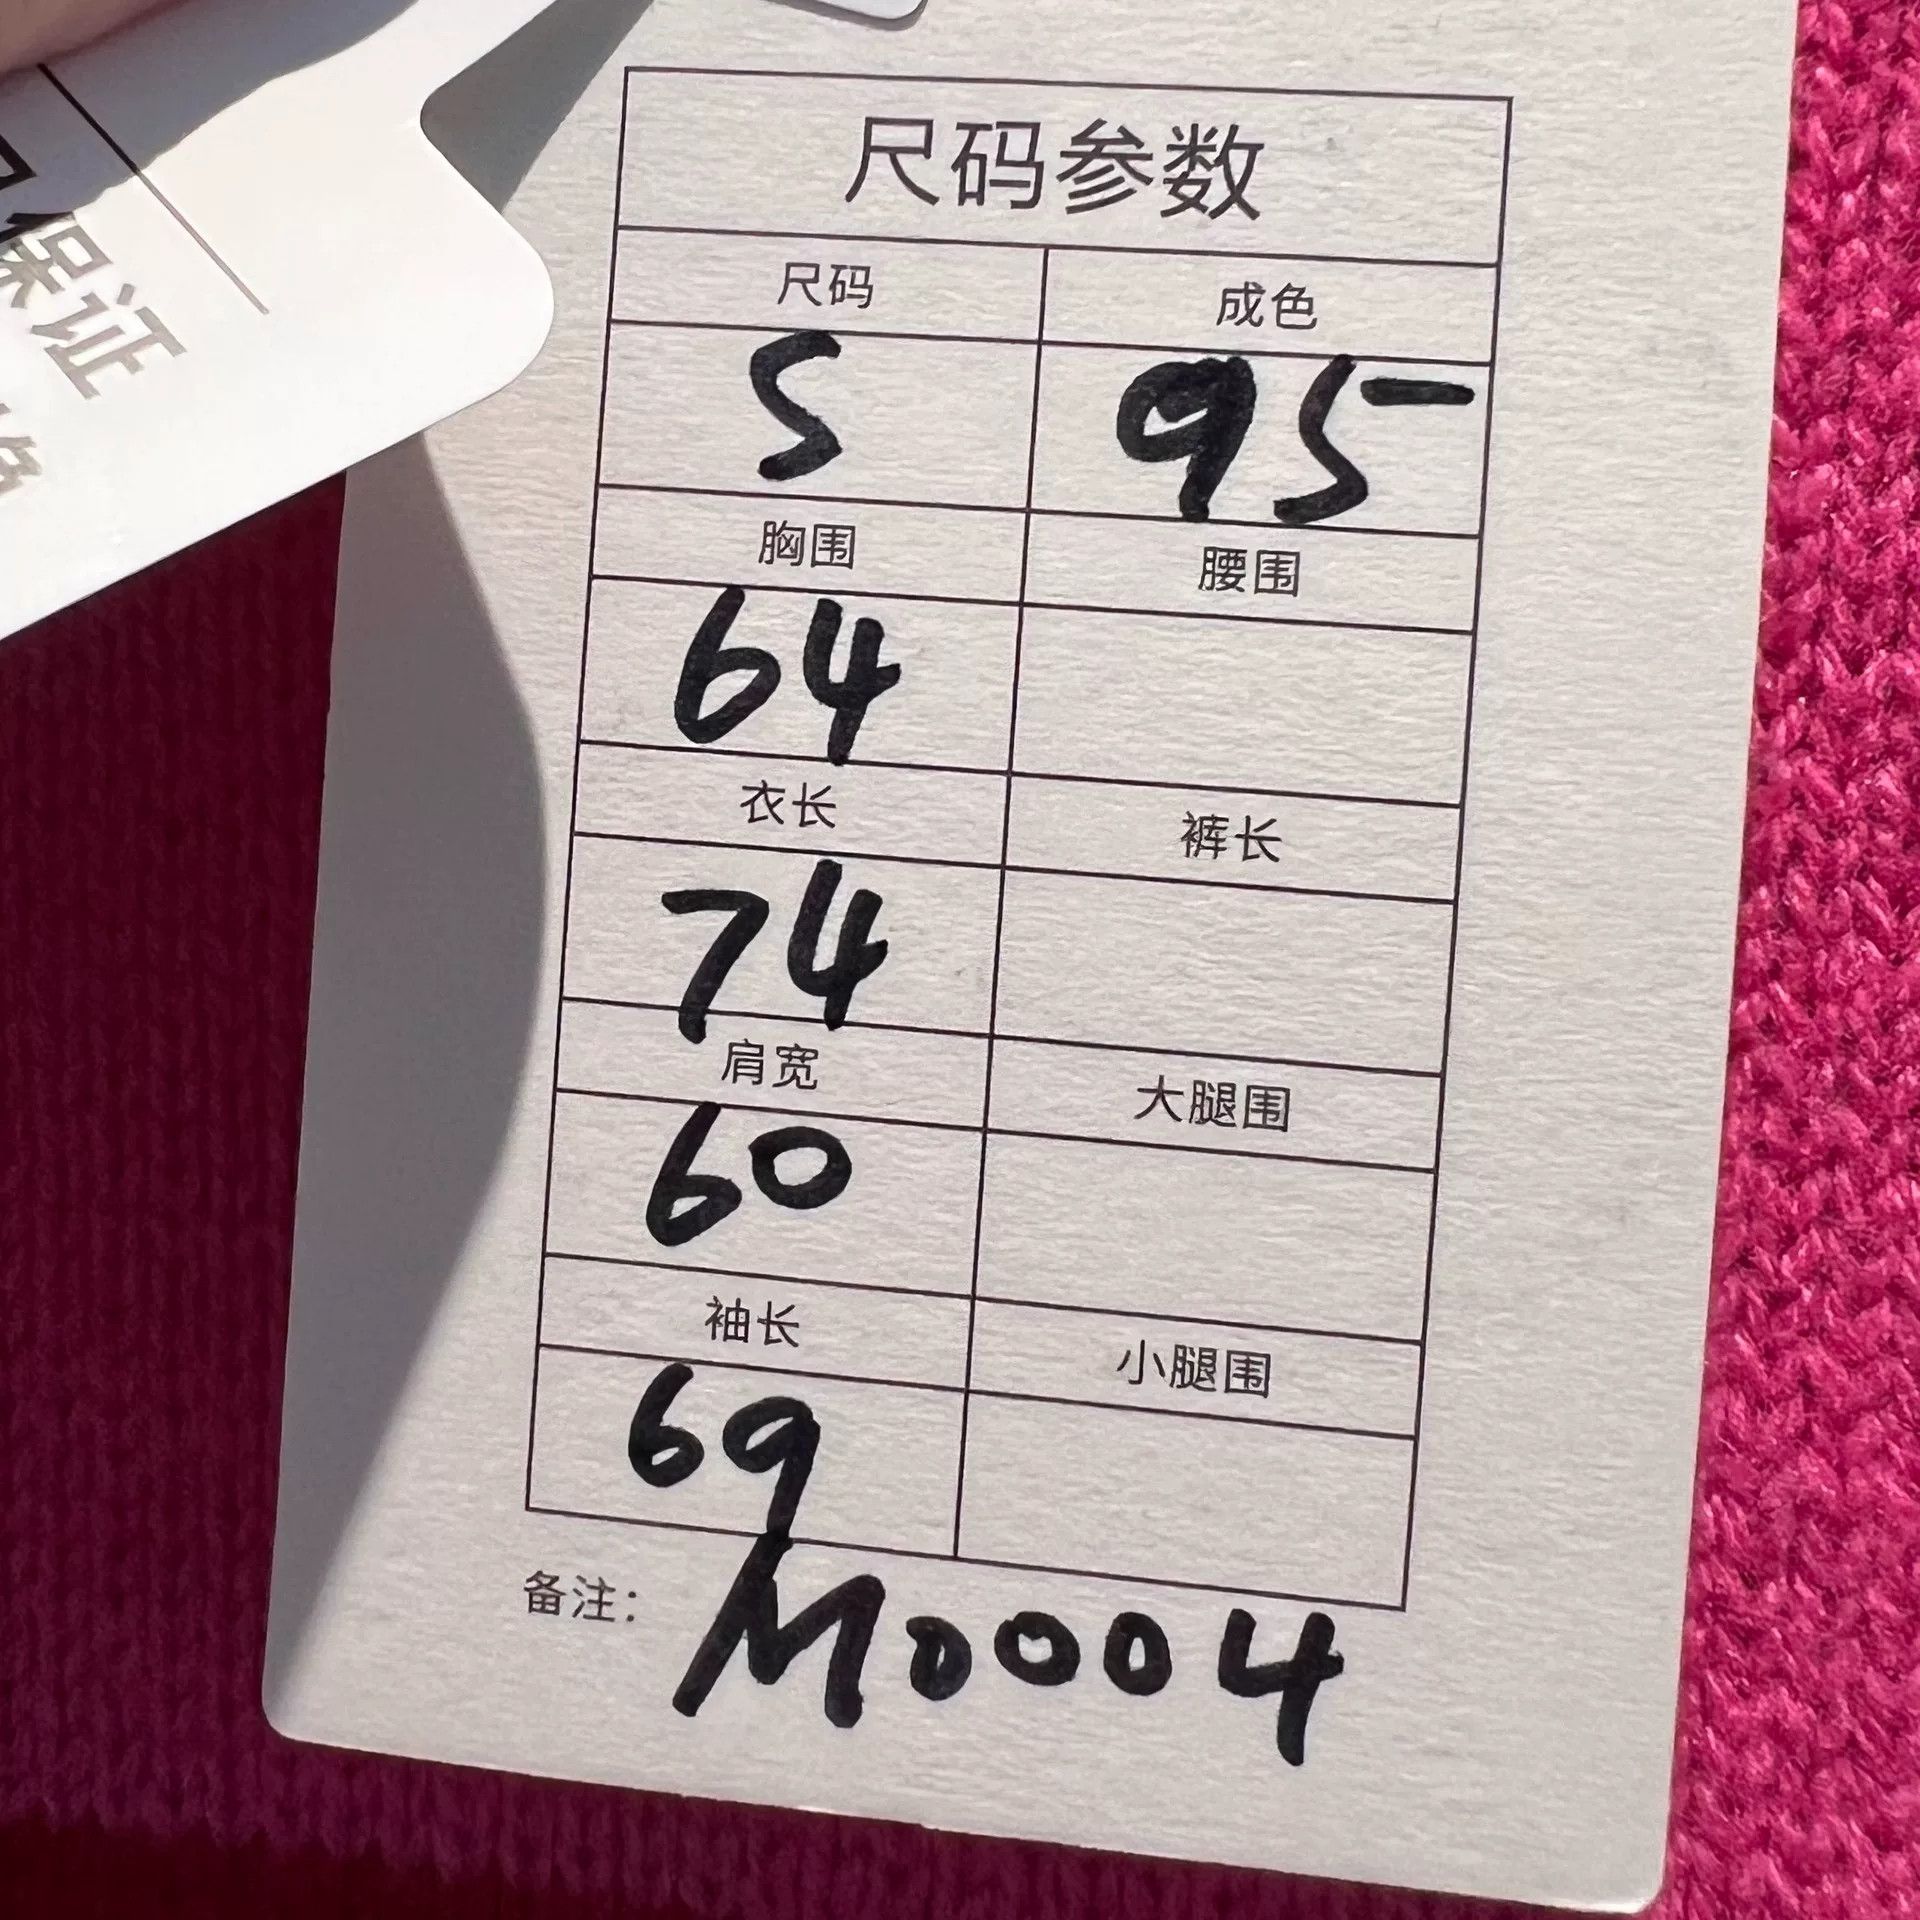 保证
尺码参数
尺码 成色
S 95
胸围 腰围
64
衣长 裤长
74
肩宽 大腿围
60
袖长 小腿围
69
备注: M0004